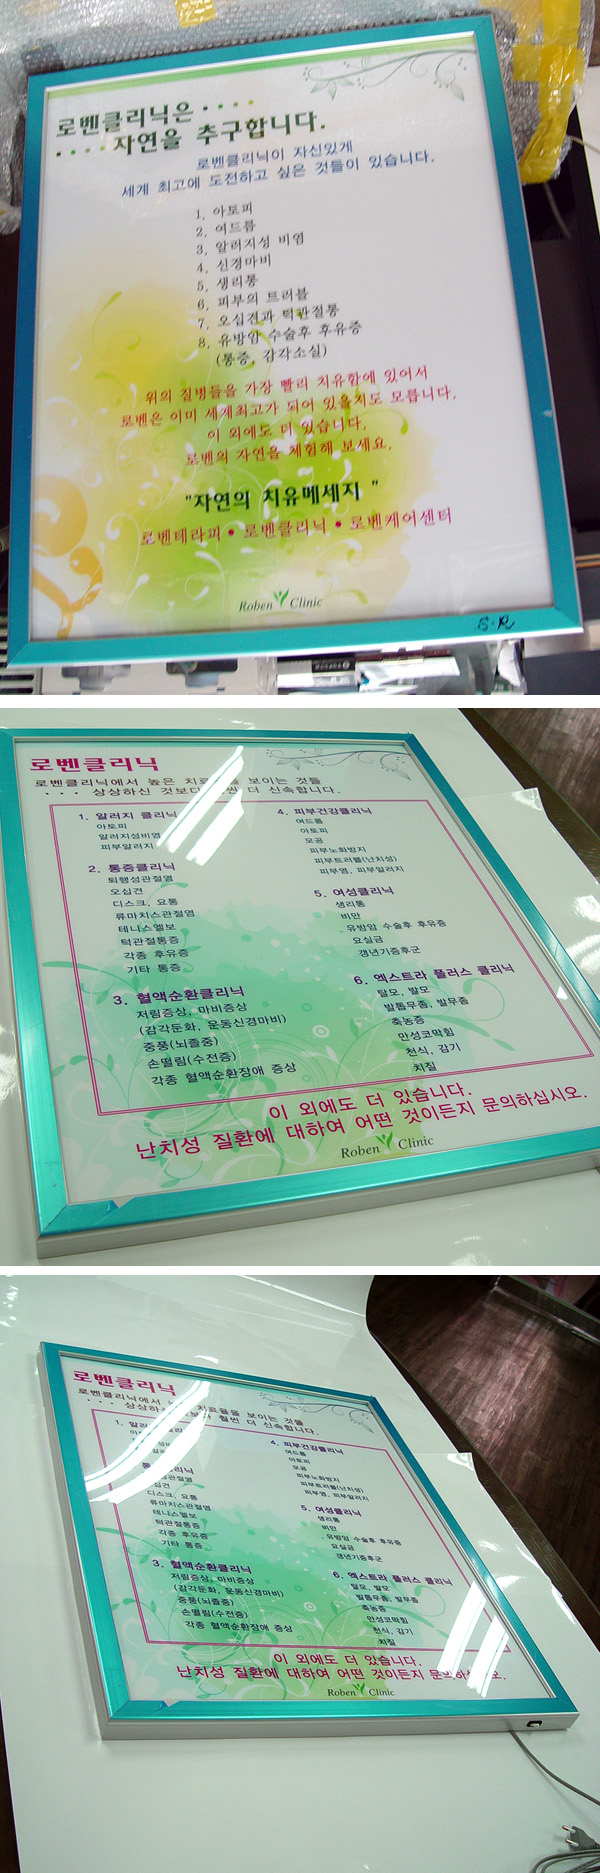 로벤클리닉은 ····
····자연을 추구합니다.
로벤클리닉이 자신있게
세계 최고에 도전하고 싶은 것들이 있습니다.
1, 아토피
2, 여드름
3, 알러지성 비염
4, 신경마비
5, 생리통
6, 피부의 트러블
7, 오십견과 턱관절통
8, 유방암 수술후 후유증
(통증, 감각소실)
위의 질병들을 가장 빨리 치유함에 있어서
로벤은 이미 세계최고가 되어 있을지도 모릅니다.
이 외에도 더 있습니다.
로벤의 자연을 체험해 보세요.
"자연의 치유메세지 "
로벤테라피 • 로벤클리닉 • 로벤케어센터
Roben Clinic
로벤클리닉
로벤클리닉에서 높은 을 보이는 것들
··· 상상하신 것보다 씬 더 신속합니다.
1. 알러지 클리닉
아토피
알러지성비염
피부알러지
2. 통증클리닉
퇴행성관절염
오십견
디스크, 요통
류마치스관절염
테니스엘보
턱관절통증
각종 후유증
기타 통증
3. 혈액순환클리닉
저림증상, 마비증상
(감각둔화, 운동신경마비)
중풍(뇌졸중)
손떨림(수전증)
각종 혈액순환장애 증상
4. 피부건강클리닉
여드름
아토피
모공
피부노화방지
피부트러블(난치성)
피부염, 피부알러지
5. 여성클리닉
생리통
비만
유방암 수술후 후유증
요실금
갱년기증후군
6. 엑스트라 플러스 클리닉
탈모, 발모
발톱무좀, 발무좀
축농증
만성코막힘
천식, 감기
치질
이 외에도 더 있습니다.
난치성 질환에 대하여 어떤 것이든지 문의하십시오.
Roben Clinic
로벤클리닉
로벤클리닉에서 치료율을 보이는 것들
··· 훨씬 더 신속합니다.
디스크, 요통
류마치스관절염
테니스엘보
턱관절통증
각종 후유증
기타 통증
3. 혈액순환클리닉
저림증상, 마비증상
(감각둔화, 운동신경마비)
중풍(뇌졸중)
손떨림(수전증)
각종 혈액순환장애 증상
4. 피부건강클리닉
여드름
아토피
모공
피부노화방지
피부트러블(난치성)
피부염, 피부알러지
5. 여성클리닉
생리통
비만
유방암 수술후 후유증
요실금
갱년기증후군
6. 엑스트라 플러스 클리닉
탈모, 발모
발톱무좀, 발무좀
축농증
만성코막힘
천식, 감기
치질
이 외에도 더 있습니다.
난치성 질환에 대하여 어떤 것이든지 문의하십시오.
Roben Clinic